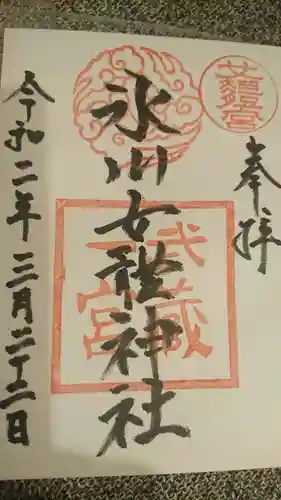 奉拝
氷川女體神社
令和二年三月二十二日
武蔵
一宮
女體宮